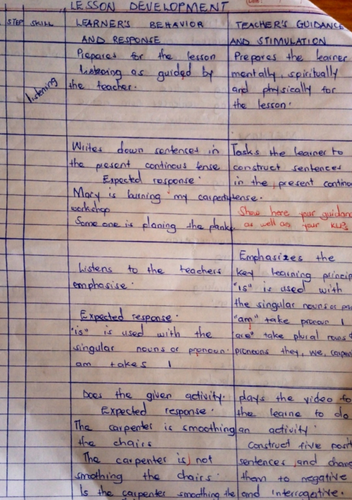 LESSON DEVELOPMENT
STEP SKILL LEARNER'S BEHAVIOR TEACHER'S GUIDANCE
AND RESPONSE AND STIMULATION
Prepares for the lesson Prepares the learner
listening as guided by mentally, spiritually
the teacher. and physically for
listening
the lesson.
Writes down sentences in Tasks the learner to
the present continous tense construct sentences
Expected response. in the present continou
Macy is burning my carpentry tense.
workshop
Show here your guidanc
Some one is planing the planks as well as your
Emphasizes the
Listens to the teachers key learning princip
emphasise. "is" is used with
the singular nouns or
Expected response. "am" take pronoun I
"is" is used with the are" take plural nouns
singular nouns or pronoun. pronouns they, we,
am takes I
Does the given activity. plays the video to
Expected response. the learne to do
The carpenter is smoothing an activity.
the chairs Construct five posit
The carpenter is not sentences and chang
smothing the chairs. them to negative
Is the carpenter smothing the and interrogative